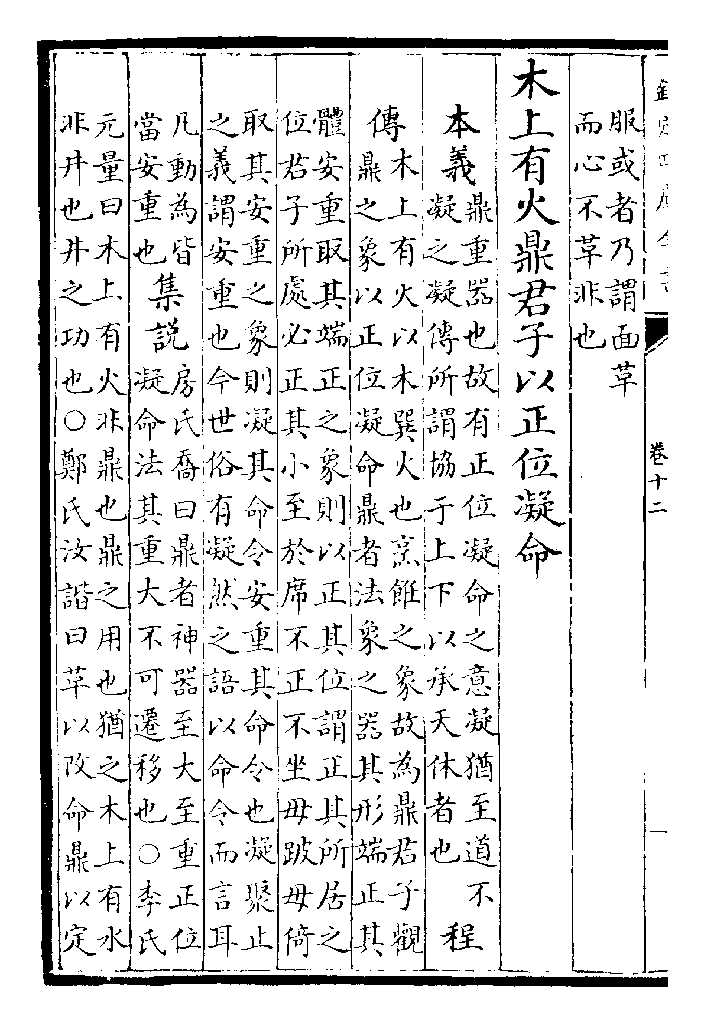 欽定四庫全書
卷十二
一
服或者乃謂面革
而心不革非也
木上有火鼎君子以正位凝命
本義
鼎重器也故有正位凝命之意凝猶至道不
凝之凝傳所謂協于上下以承天休者也
程
傳
木上有火以木巽火也烹飪之象故為鼎君子觀
鼎之象以正位凝命鼎者法象之器其形端正其
體安重取其端正之象則以正其位謂正其所居之
位君子所處必正其小至於席不正不坐毋跛毋倚
取其安重之象則凝其命令安重其命令也凝聚止
之義謂安重也今世俗有凝然之語以命令而言耳
凡動為皆
當安重也
集説
房氏喬曰鼎者神器至大至重正位
凝命法其重大不可遷移也○李氏
元量曰木上有火非鼎也鼎之用也猶之木上有水
非井也井之功也○鄭氏汝諧曰革以改命鼎以定